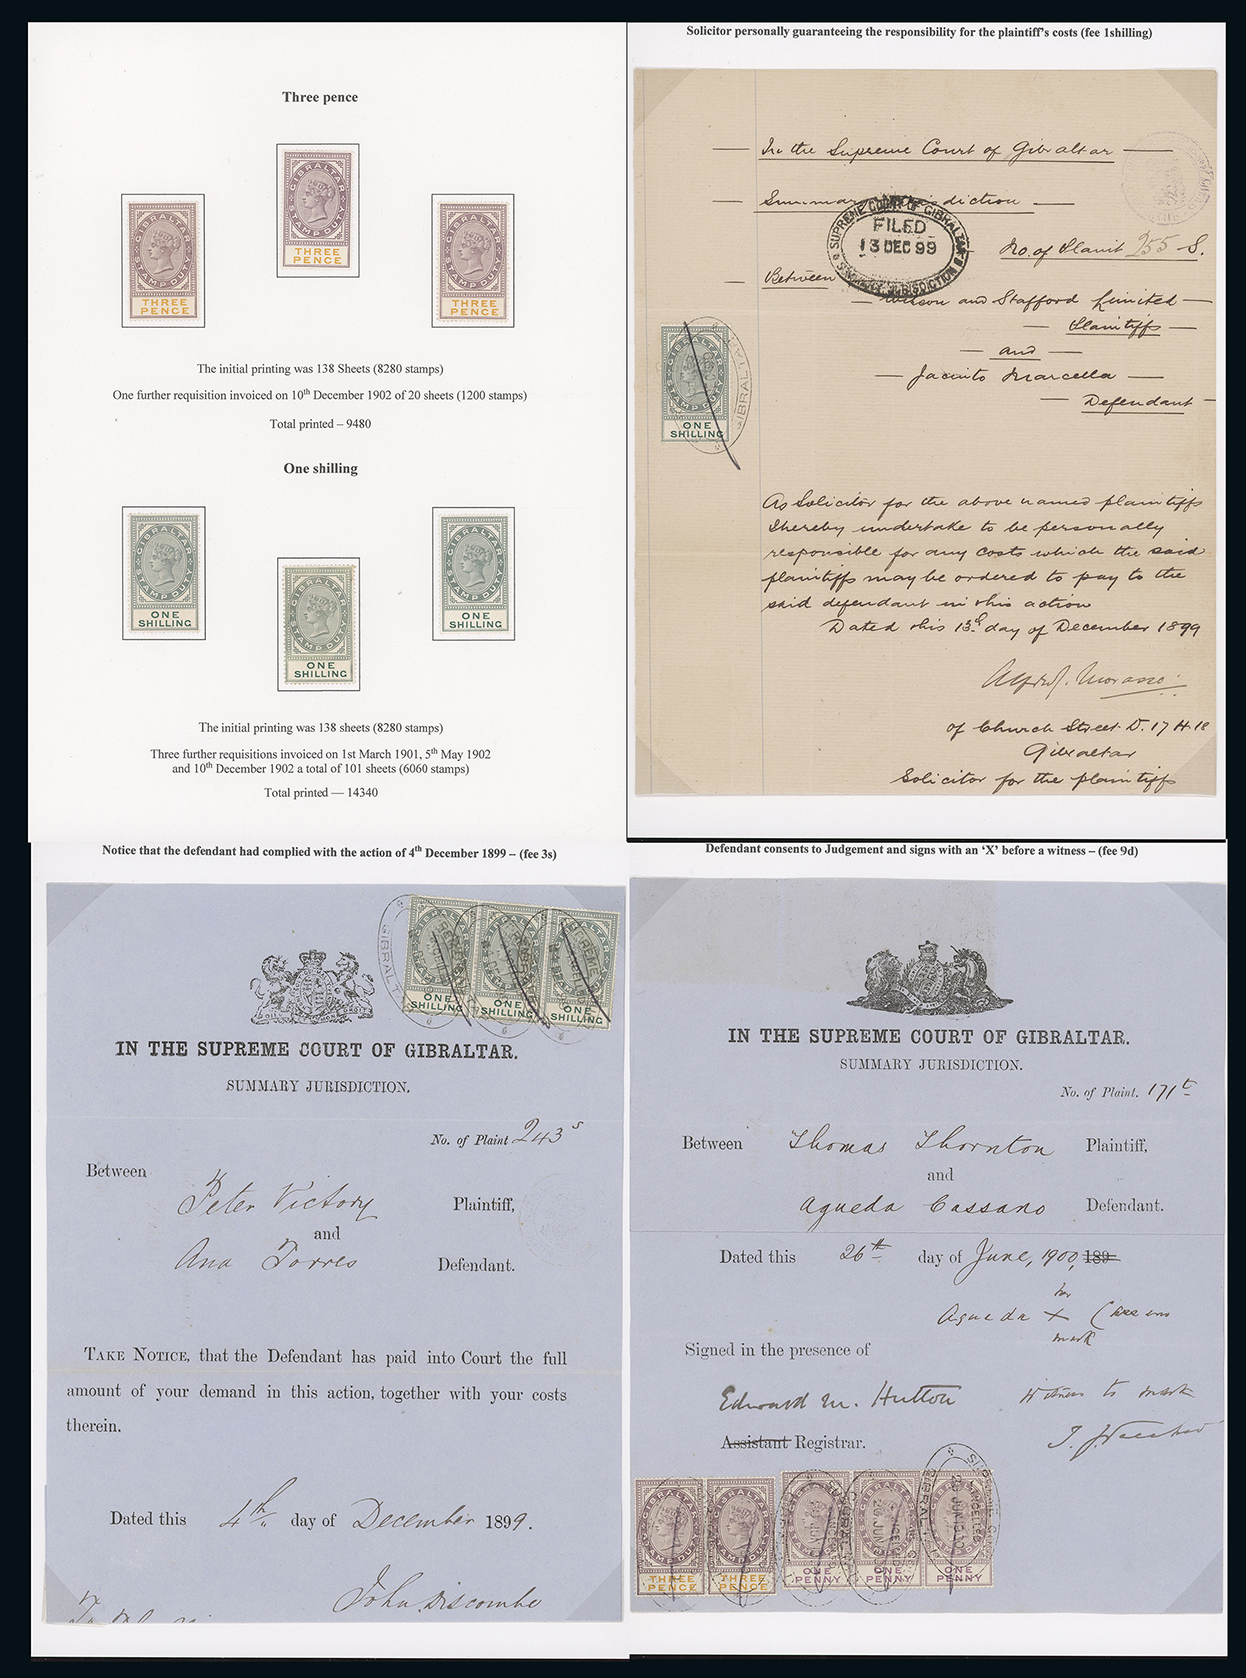 Three pence
GIBRALTAR
STAMP DUTY
THREE
PENCE
GIBRALTAR
STAMP DUTY
THREE
PENCE
GIBRALTAR
STAMP DUTY
THREE
PENCE
The initial printing was 138 Sheets (8280 stamps)
One further requisition invoiced on 10th December 1902 of 20 sheets (1200 stamps)
Total printed – 9480
One shilling
GIBRALTAR
STAMP DUTY
ONE
SHILLING
GIBRALTAR
STAMP DUTY
ONE
SHILLING
GIBRALTAR
STAMP DUTY
ONE
SHILLING
The initial printing was 138 sheets (8280 stamps)
Three further requisitions invoiced on 1st March 1901, 5th May 1902
and 10th December 1902 a total of 101 sheets (6060 stamps)
Total printed — 14340
Solicitor personally guaranteeing the responsibility for the plaintiff's costs (fee 1shilling)
In the Supreme Court of Gibraltar
Summary Jurisdiction
SUPREME COURT OF GIBRALTAR
FILED
13 DEC 99
SUMMARY JURISDICTION
No. of Plaint 255 S.
Between
Wilson and Stafford Limited
Plaintiffs
and
Jacinto Marcella
Defendant
GIBRALTAR
STAMP DUTY
ONE
SHILLING
GIBRALTAR
As Solicitor for the above named plaintiffs
I hereby undertake to be personally
responsible for any costs which the said
plaintiffs may be ordered to pay to the
said defendant in this action
Dated this 13th day of December 1899
Alfred J. Morasso
of Church Street D. 17 H. 18
Gibraltar
Solicitor for the plaintiffs
Notice that the defendant had complied with the action of 4th December 1899 – (fee 3s)
GIBRALTAR
STAMP DUTY
ONE
SHILLING
ONE
SHILLING
ONE
SHILLING
IN THE SUPREME COURT OF GIBRALTAR.
SUMMARY JURISDICTION.
No. of Plaint 243 s
Between
Peter Victory Plaintiff,
and
Ana Torres Defendant.
TAKE NOTICE, that the Defendant has paid into Court the full
amount of your demand in this action, together with your costs
therein.
Dated this 4th day of December 1899.
John Discombe
Defendant consents to Judgement and signs with an 'X' before a witness – (fee 9d)
IN THE SUPREME COURT OF GIBRALTAR.
SUMMARY JURISDICTION.
No. of Plaint. 171 t
Between Thomas Thornton Plaintiff,
and
Agueda Cassano Defendant.
Dated this 26th day of June, 1900, 189
her
Agueda X Cassano
mark
Signed in the presence of
Edward M. Hutton witness to mark
Assistant Registrar.
GIBRALTAR
STAMP DUTY
THREE
PENCE
THREE
PENCE
ONE
PENNY
ONE
PENNY
ONE
PENNY